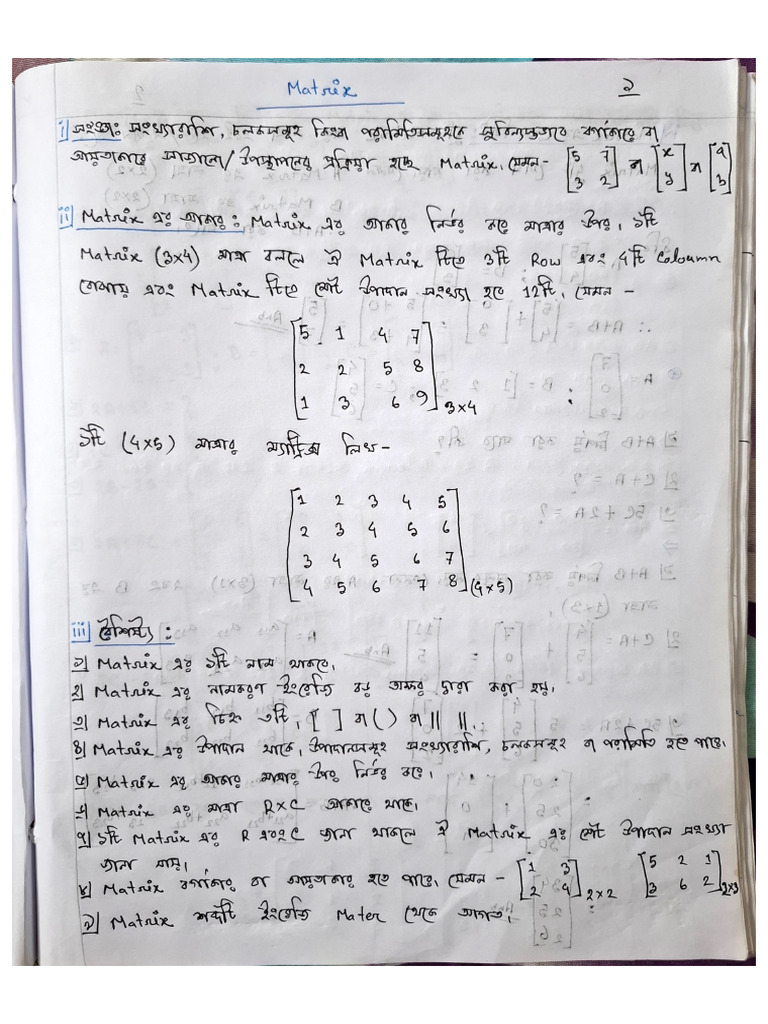 Matrix ১
i] সংজ্ঞাঃ সংখ্যারাশি, চলকসমূহ কিংবা পরামিতিসমূহকে সুবিন্যস্তভাবে বর্গাকারে বা
আয়তাকারে সাজানো/উপস্থাপনের প্রক্রিয়া হচ্ছে Matrix, যেমন- [5 7 3 2] বা [x y] বা [a b]
ii] Matrix এর আকার : Matrix এর আকার নির্ভর করে মাত্রার উপর, ১টি
Matrix (3×4) মাত্রা বললে ঐ Matrix টিতে 3টি Row এবং 4টি Coloumn
বোঝায় এবং Matrix টিতে মোট উপাদান সংখ্যা হবে 12টি, যেমন -
5 1 4 7
2 2 5 8
1 3 6 9 3×4
১টি (4×5) মাত্রার ম্যাট্রিক্স লিখ-
1 2 3 4 5
2 3 4 5 6
3 4 5 6 7
4 5 6 7 8 (4×5)
iii] বৈশিষ্ট্য :
১] Matrix এর ১টি নাম থাকবে।
২] Matrix এর নামকরণ ইংরেজি বড় অক্ষর দ্বারা করা হয়।
৩] Matrix এর চিহ্ন ৩টি, [ ] বা ( ) বা || ||.
৪] Matrix এর উপাদান থাকে, উপাদানসমূহ সংখ্যারাশি, চলকসমূহ বা পরামিতি হতে পারে।
৫] Matrix এর আকার মাত্রার উপর নির্ভর করে।
৬] Matrix এর মাত্রা R×C আকারে থাকে।
৭] ১টি Matrix এর R এবং C জানা থাকলে ঐ Matrix এর মোট উপাদান সংখ্যা
জানা যায়।
৮] Matrix বর্গাকার বা আয়তাকার হতে পারে, যেমন - [1 3 2 4] 2×2 [5 2 1 3 6 2] 2×3
৯] Matrix শব্দটি ইংরেজি Mater থেকে আগত।